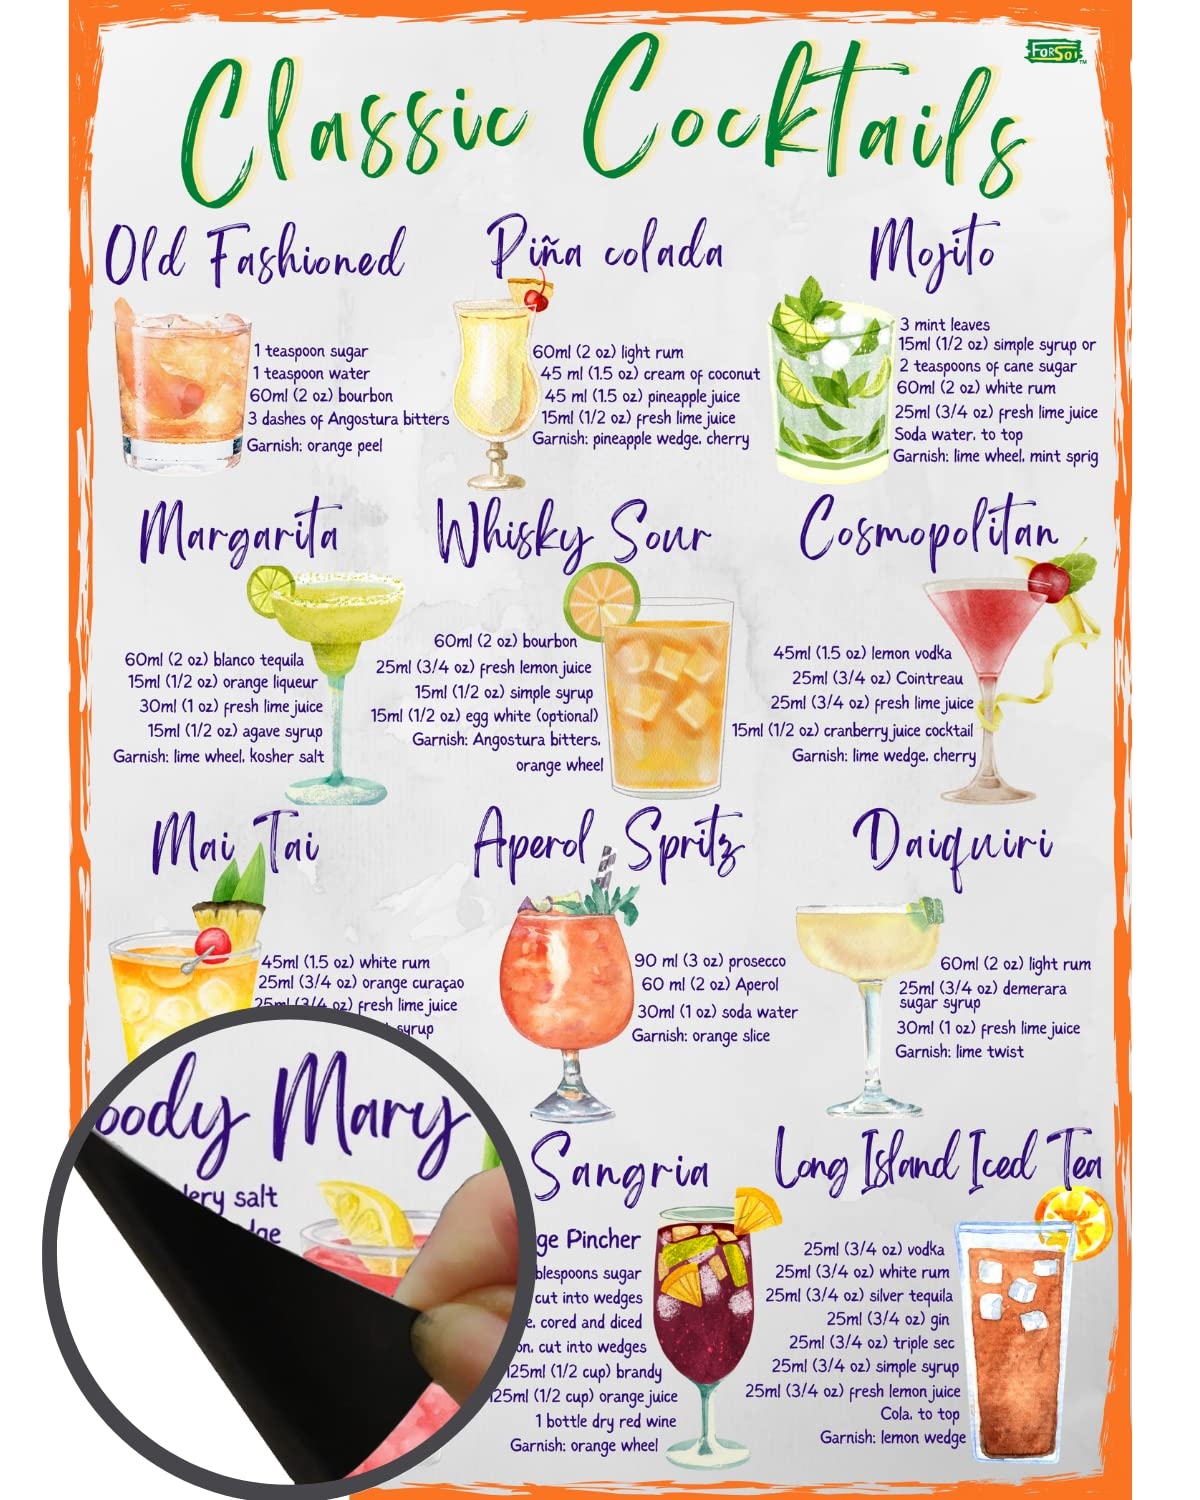 ForSoi™
Classic Cocktails
Old Fashioned
1 teaspoon sugar
1 teaspoon water
60ml (2 oz) bourbon
3 dashes of Angostura bitters
Garnish: orange peel
Piña colada
60ml (2 oz) light rum
45 ml (1.5 oz) cream of coconut
45 ml (1.5 oz) pineapple juice
15ml (1/2 oz) fresh lime juice
Garnish: pineapple wedge, cherry
Mojito
3 mint leaves
15ml (1/2 oz) simple syrup or
2 teaspoons of cane sugar
60ml (2 oz) white rum
25ml (3/4 oz) fresh lime juice
Soda water, to top
Garnish: lime wheel, mint sprig
Margarita
60ml (2 oz) blanco tequila
15ml (1/2 oz) orange liqueur
30ml (1 oz) fresh lime juice
15ml (1/2 oz) agave syrup
Garnish: lime wheel, kosher salt
Whisky Sour
60ml (2 oz) bourbon
25ml (3/4 oz) fresh lemon juice
15ml (1/2 oz) simple syrup
15ml (1/2 oz) egg white (optional)
Garnish: Angostura bitters,
orange wheel
Cosmopolitan
45ml (1.5 oz) lemon vodka
25ml (3/4 oz) Cointreau
25ml (3/4 oz) fresh lime juice
15ml (1/2 oz) cranberry juice cocktail
Garnish: lime wedge, cherry
Mai Tai
45ml (1.5 oz) white rum
25ml (3/4 oz) orange curaçao
25ml (3/4 oz) fresh lime juice
syrup
Aperol Spritz
90 ml (3 oz) prosecco
60 ml (2 oz) Aperol
30ml (1 oz) soda water
Garnish: orange slice
Daiquiri
60ml (2 oz) light rum
25ml (3/4 oz) demerara
sugar syrup
30ml (1 oz) fresh lime juice
Garnish: lime twist
oody Mary
lery salt
dge
Sangria
ge Pincher
blespoons sugar
cut into wedges
e, cored and diced
on, cut into wedges
125ml (1/2 cup) brandy
125ml (1/2 cup) orange juice
1 bottle dry red wine
Garnish: orange wheel
Long Island Iced Tea
25ml (3/4 oz) vodka
25ml (3/4 oz) white rum
25ml (3/4 oz) silver tequila
25ml (3/4 oz) gin
25ml (3/4 oz) triple sec
25ml (3/4 oz) simple syrup
25ml (3/4 oz) fresh lemon juice
Cola, to top
Garnish: lemon wedge